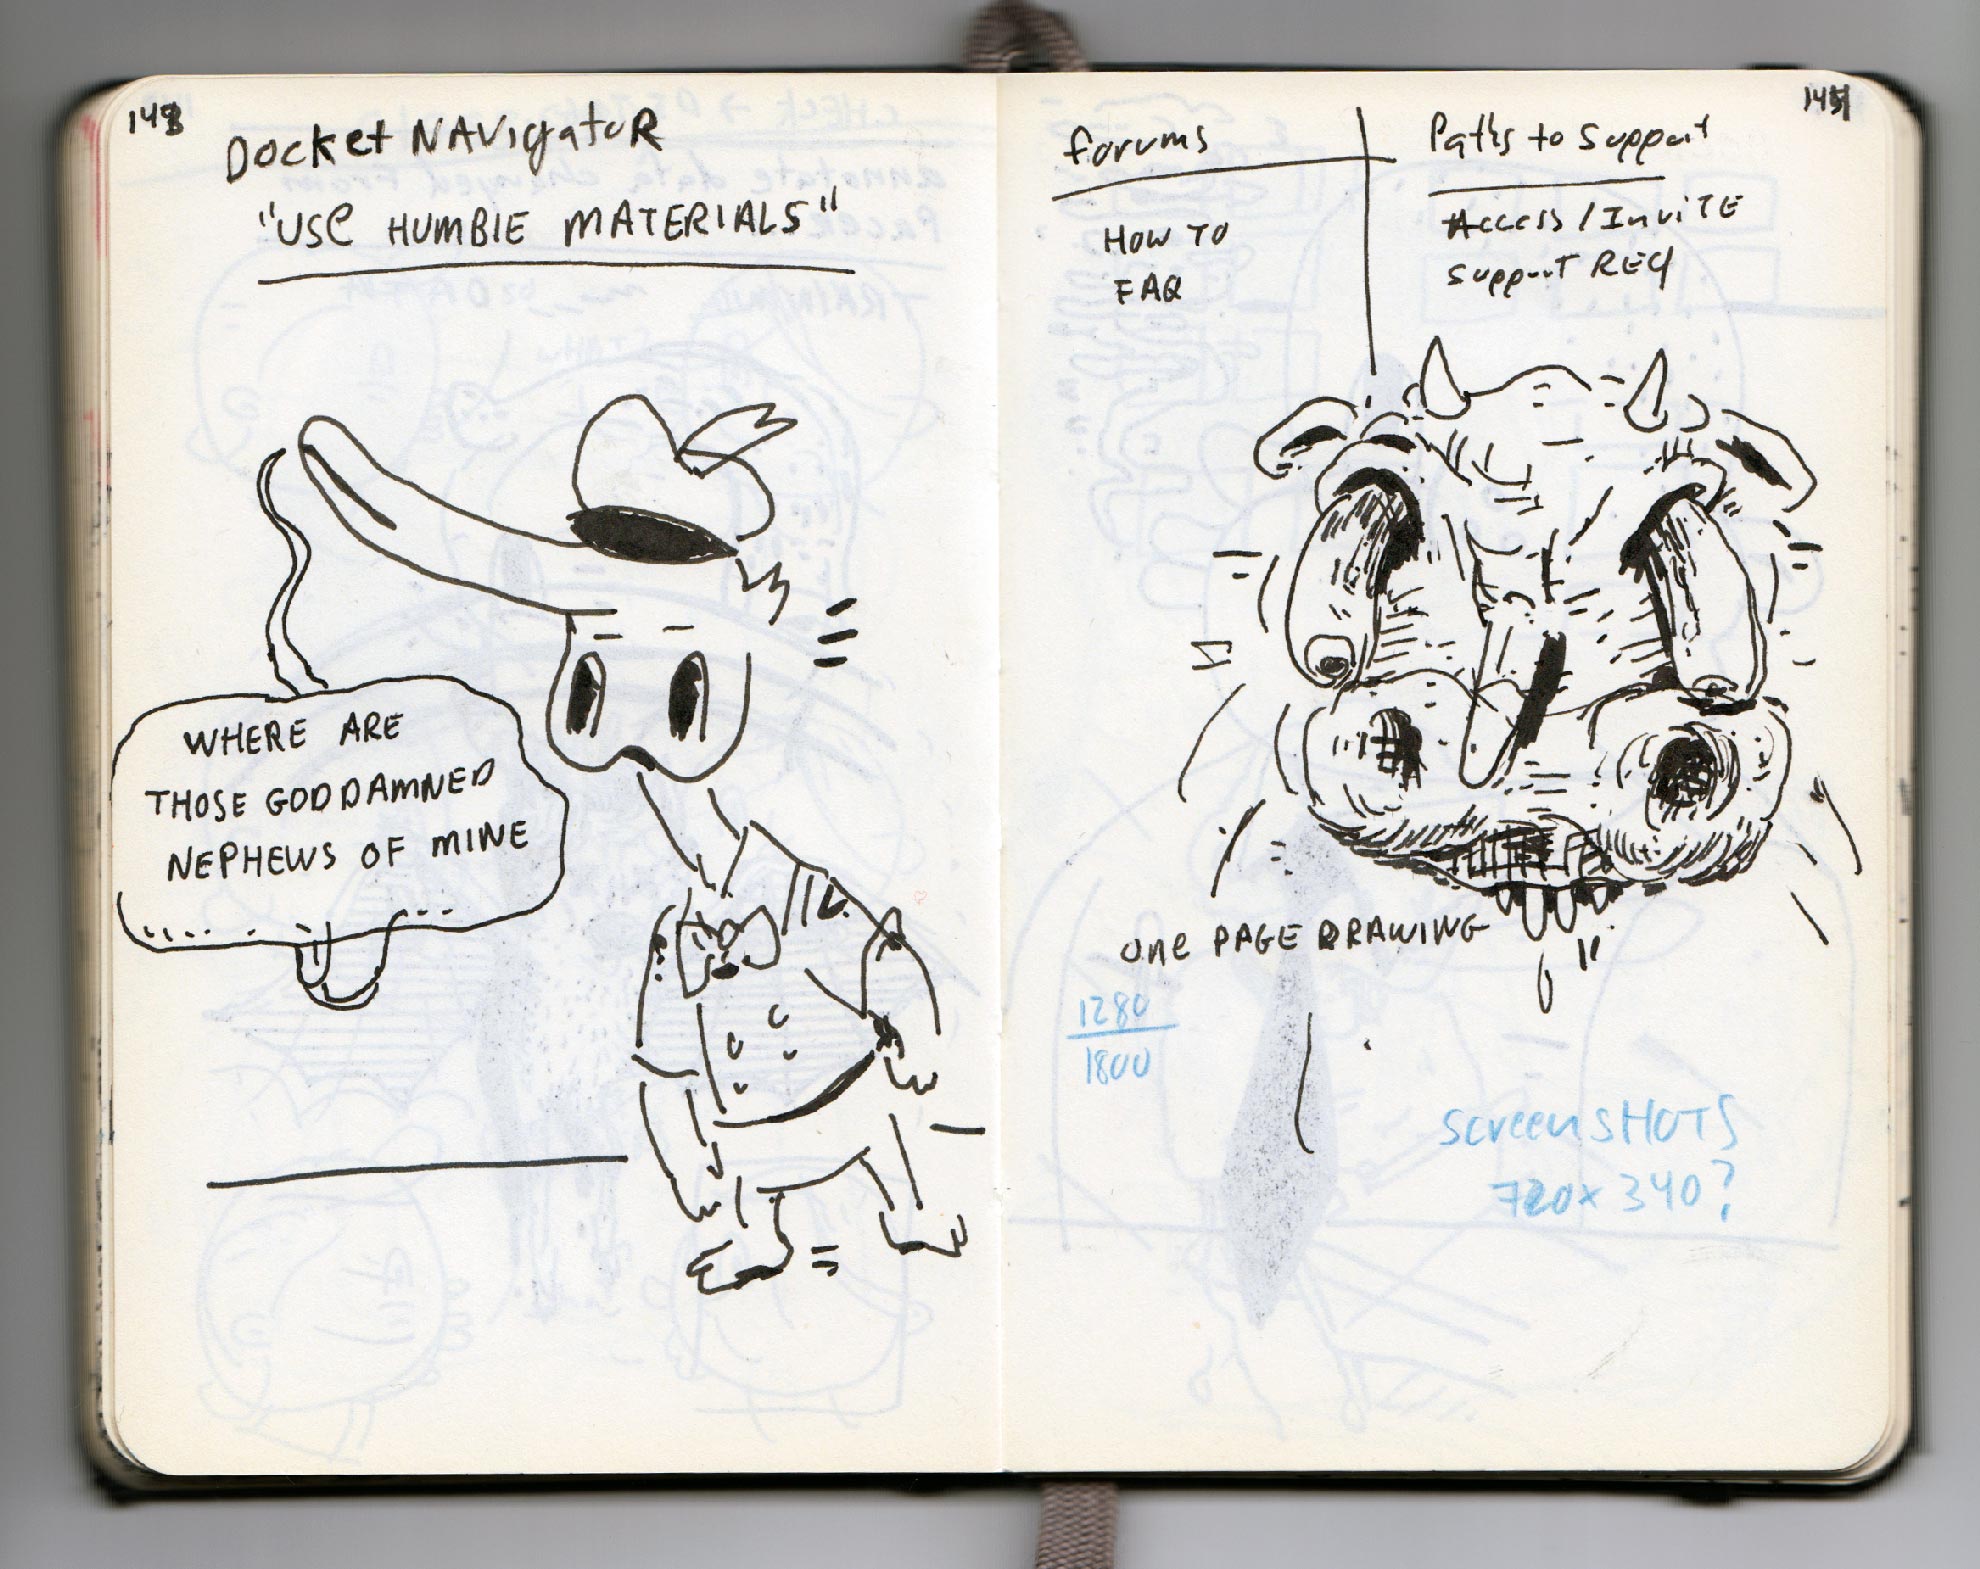 Docket NAVigatoR
"USE HUMBlE MATERIALS"
WHERE ARE
THOSE GODDAMNED
NEPHEWS OF MINE
forums
HOW TO
FAQ
Paths to Support
Access / InviTE
SuppourT REQ
one PAGE DRAWING
1280
1800
screenSHOTS
720x340?